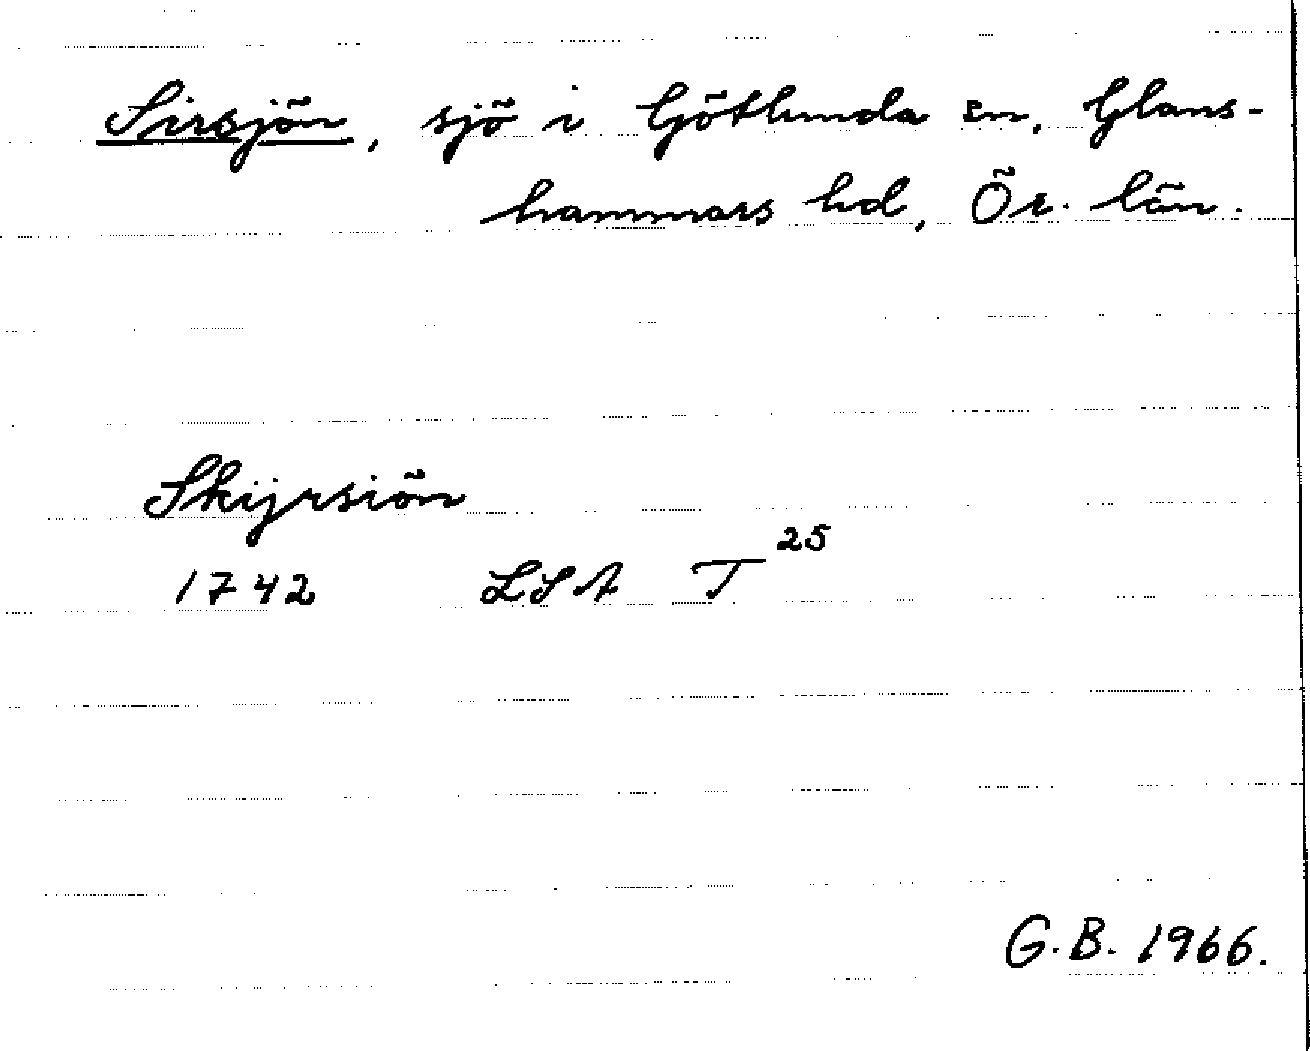 Sirsjön, sjö i Götlunda sn, Glans-
hammars hd, Ör. län.
Skijrsiön
1742 LSA T 25
G.B. 1966.